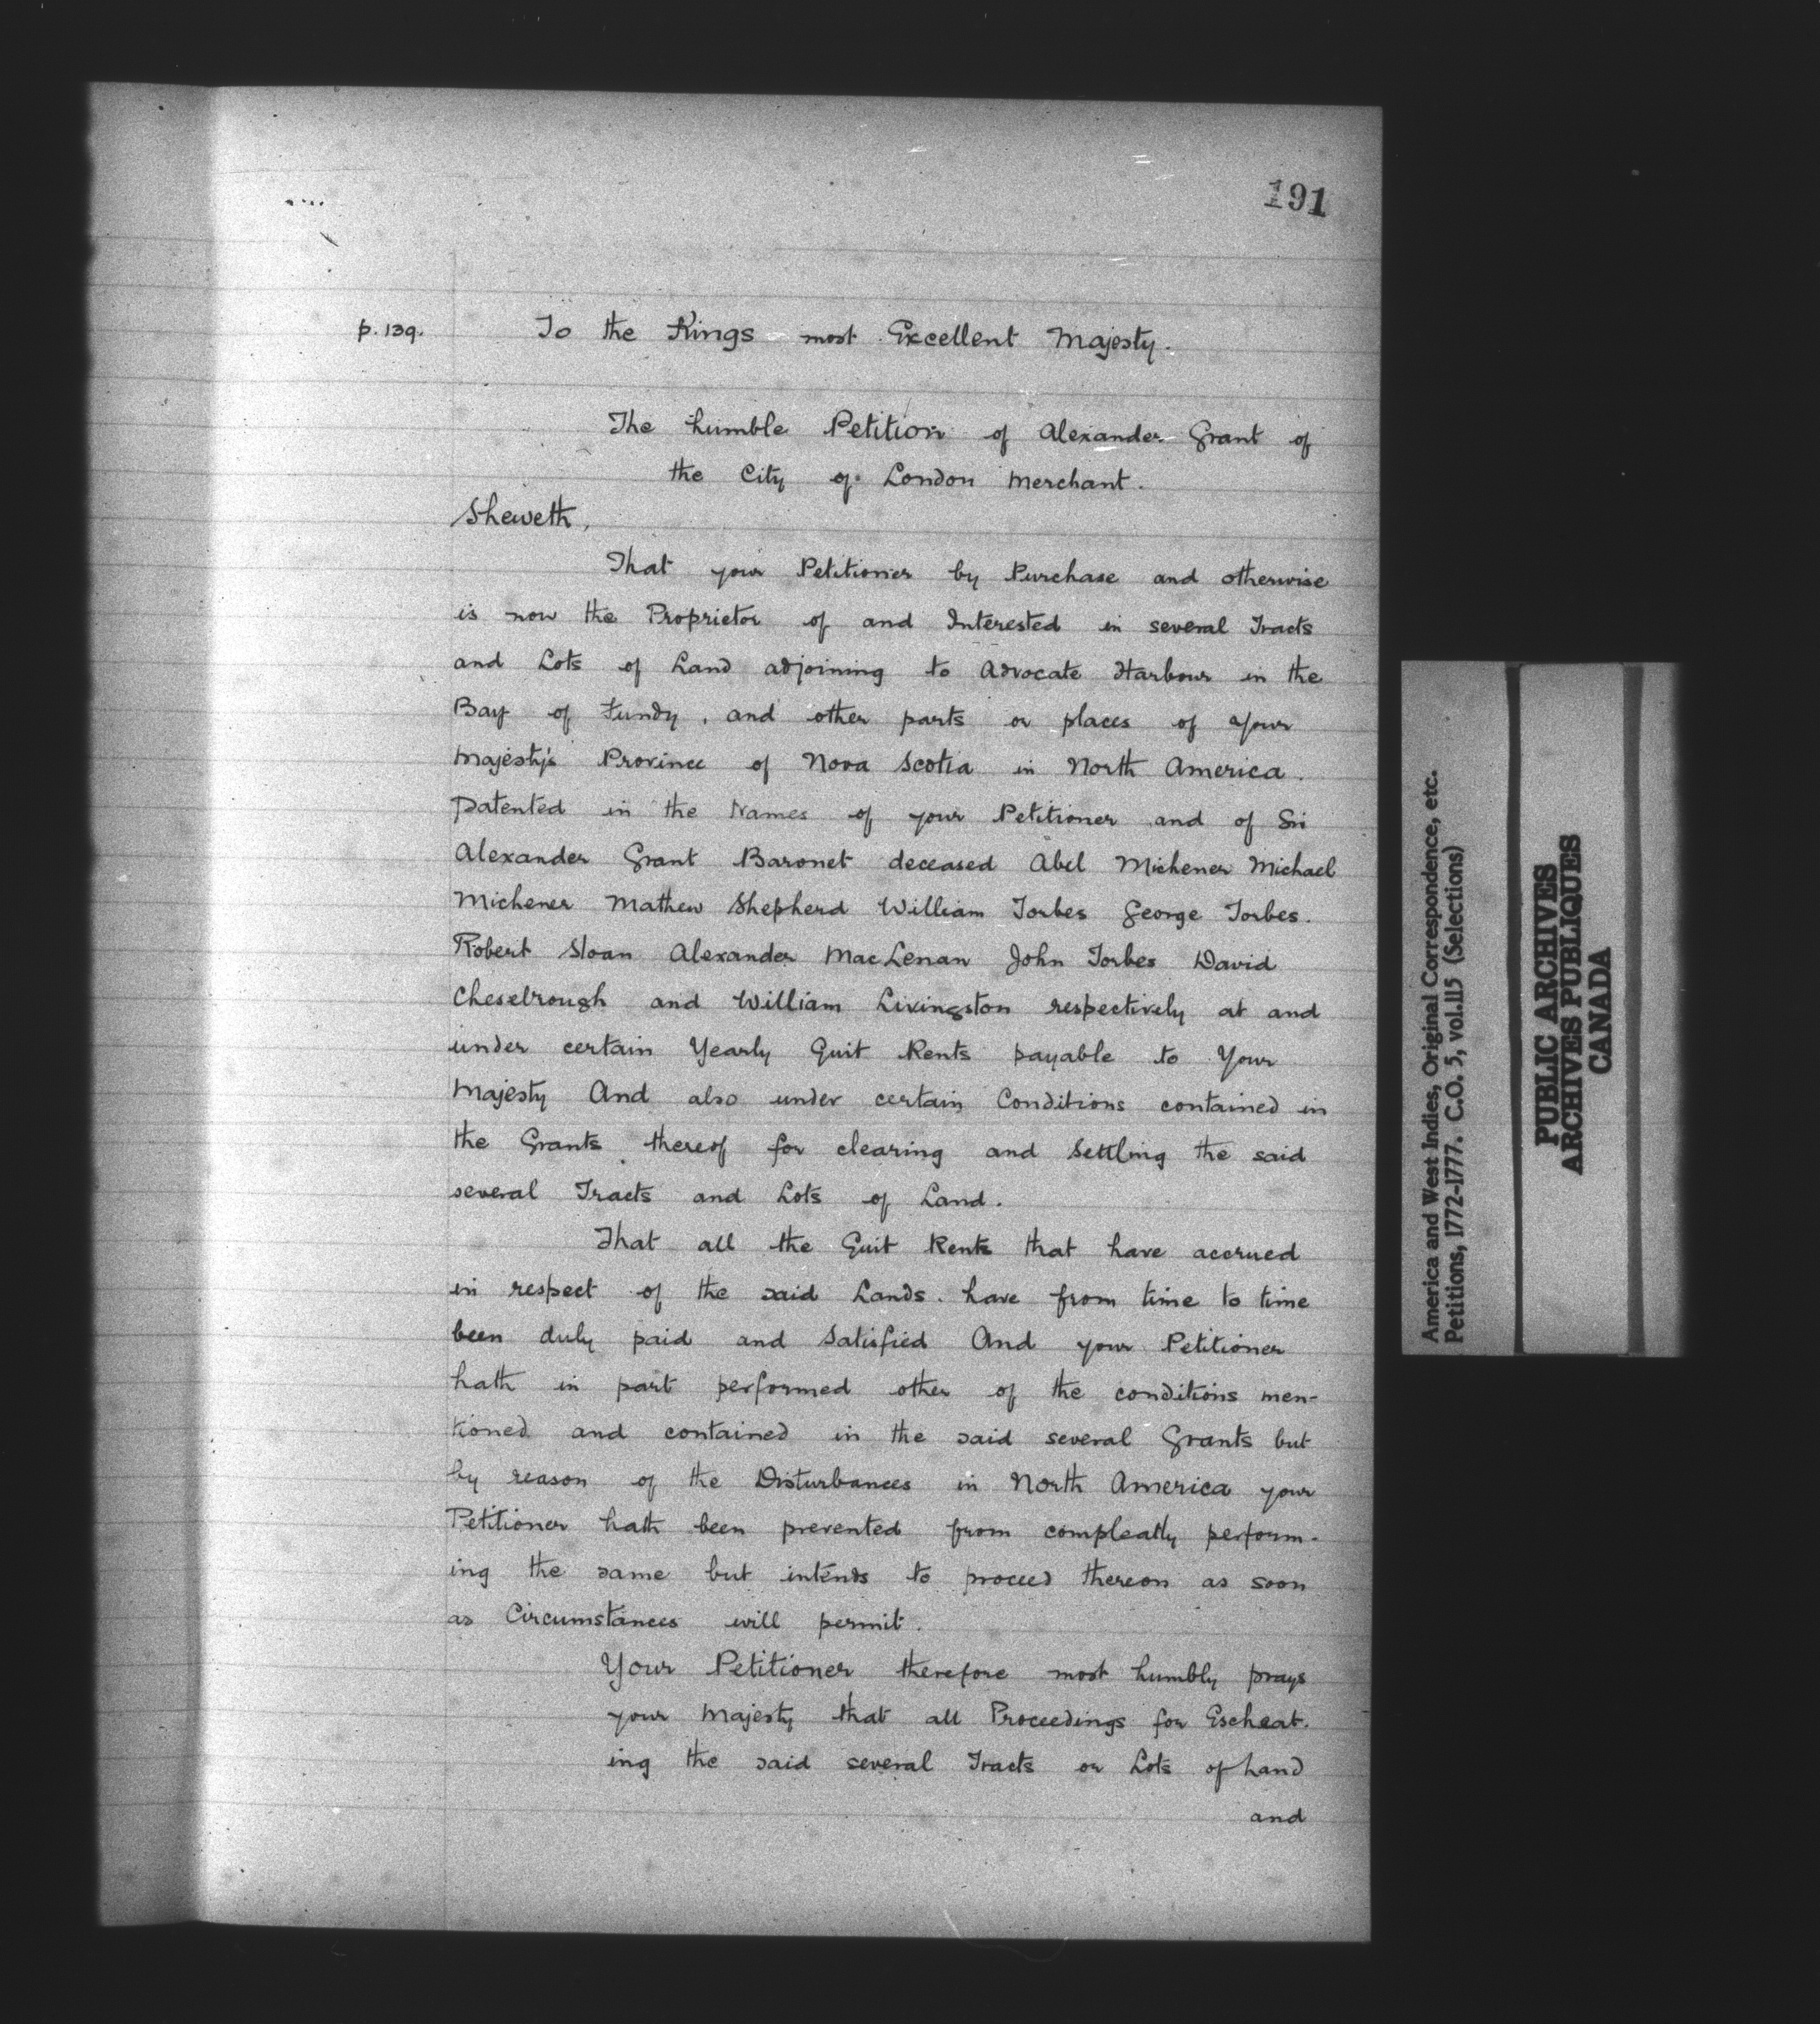 191
p. 139. To the Kings most Excellent Majesty.
The humble Petition of Alexander Grant of
the City of London Merchant.
Sheweth,
That your Petitioner by Purchase and otherwise
is now the Proprietor of and Interested in several Tracts
and Lots of Land adjoining to Advocate Harbour in the
Bay of Fundy. and other parts or places of your
Majesty's Province of Nova Scotia in North America.
Patented in the Names of your Petitioner and of Sir
Alexander Grant Baronet deceased Abel Michener Michael
Michener Mathew Shepherd William Forbes George Forbes.
Robert Sloan Alexander MacLenan John Forbes David
Cheselrough and William Livingston respectively at and
under certain Yearly Quit Rents payable to Your
Majesty And also under certain Conditions contained in
the Grants thereof for clearing and Settling the said
several Tracts and Lots of Land.
That all the Quit Rents that have accrued
in respect of the said Lands. have from time to time
been duly paid and Satisfied And your Petitioner
hath in part performed other of the conditions men-
tioned and contained in the said several Grants but
by reason of the Disturbances in North America your
Petitioner hath been prevented from compleatly perform-
ing the same but intends to proceed thereon as soon
as Circumstances will permit.
Your Petitioner therefore most humbly prays
your Majesty that all Proceedings for Escheat-
ing the said several Tracts or Lots of Land
and
America and West Indies, Original Correspondence, etc.
Petitions, 1772-1777. C.O. 5, vol.115 (Selections)
PUBLIC ARCHIVES
ARCHIVES PUBLIQUES
CANADA